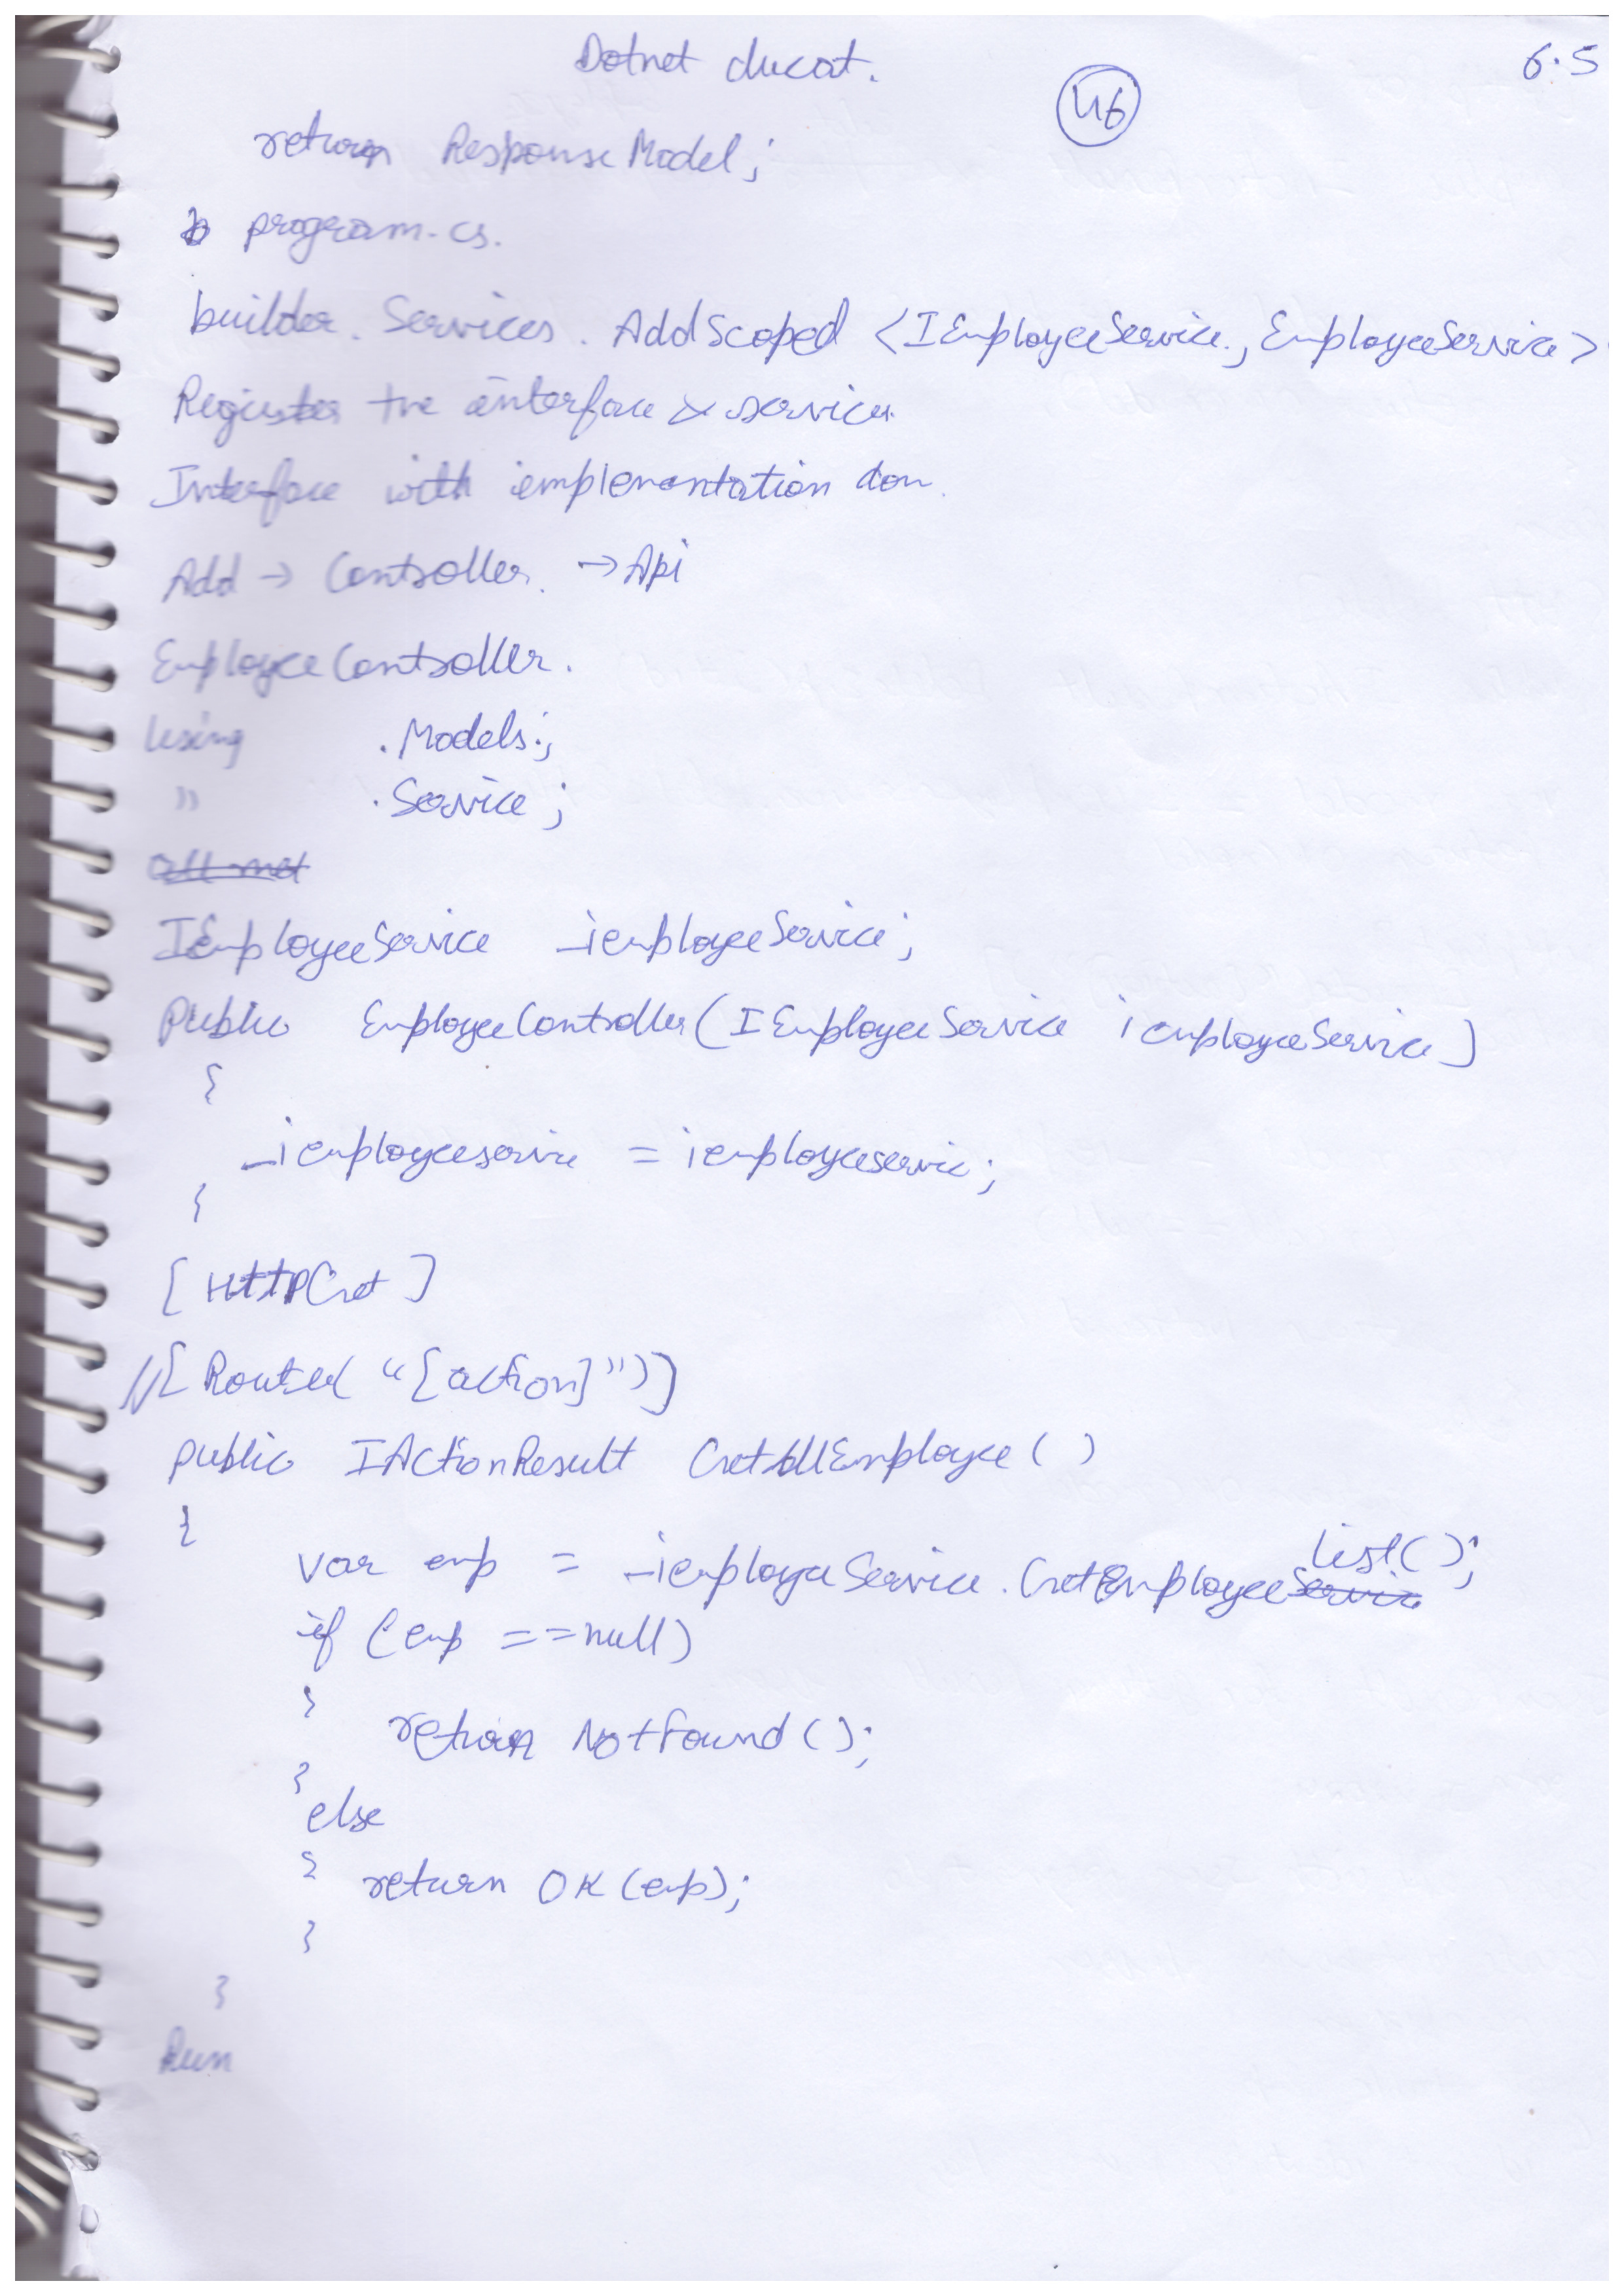 Dotnet ducat.
46
6.5
return ResponseModel;
program.cs.
builder. Services. AddScoped <IEmployeeService, EmployeeService>
Register the interface & service.
Interface with implementation don.
Add → Controller. → Api
EmployeeController.
Using .Models;
" .Service;
IEmployeeService _iemployeeService;
Public EmployeeController(IEmployeeService iemployeeService)
{
_iemployeeservice = iemployeeservic;
}
[HttpGet]
//[Route("[action]")]
public IActionResult GetAllEmployee()
{
var emp = _iemployeeService.GetEmployeeList();
if (emp ==null)
{
return NotFound();
}
else
{ return OK(emp);
}
}
Run